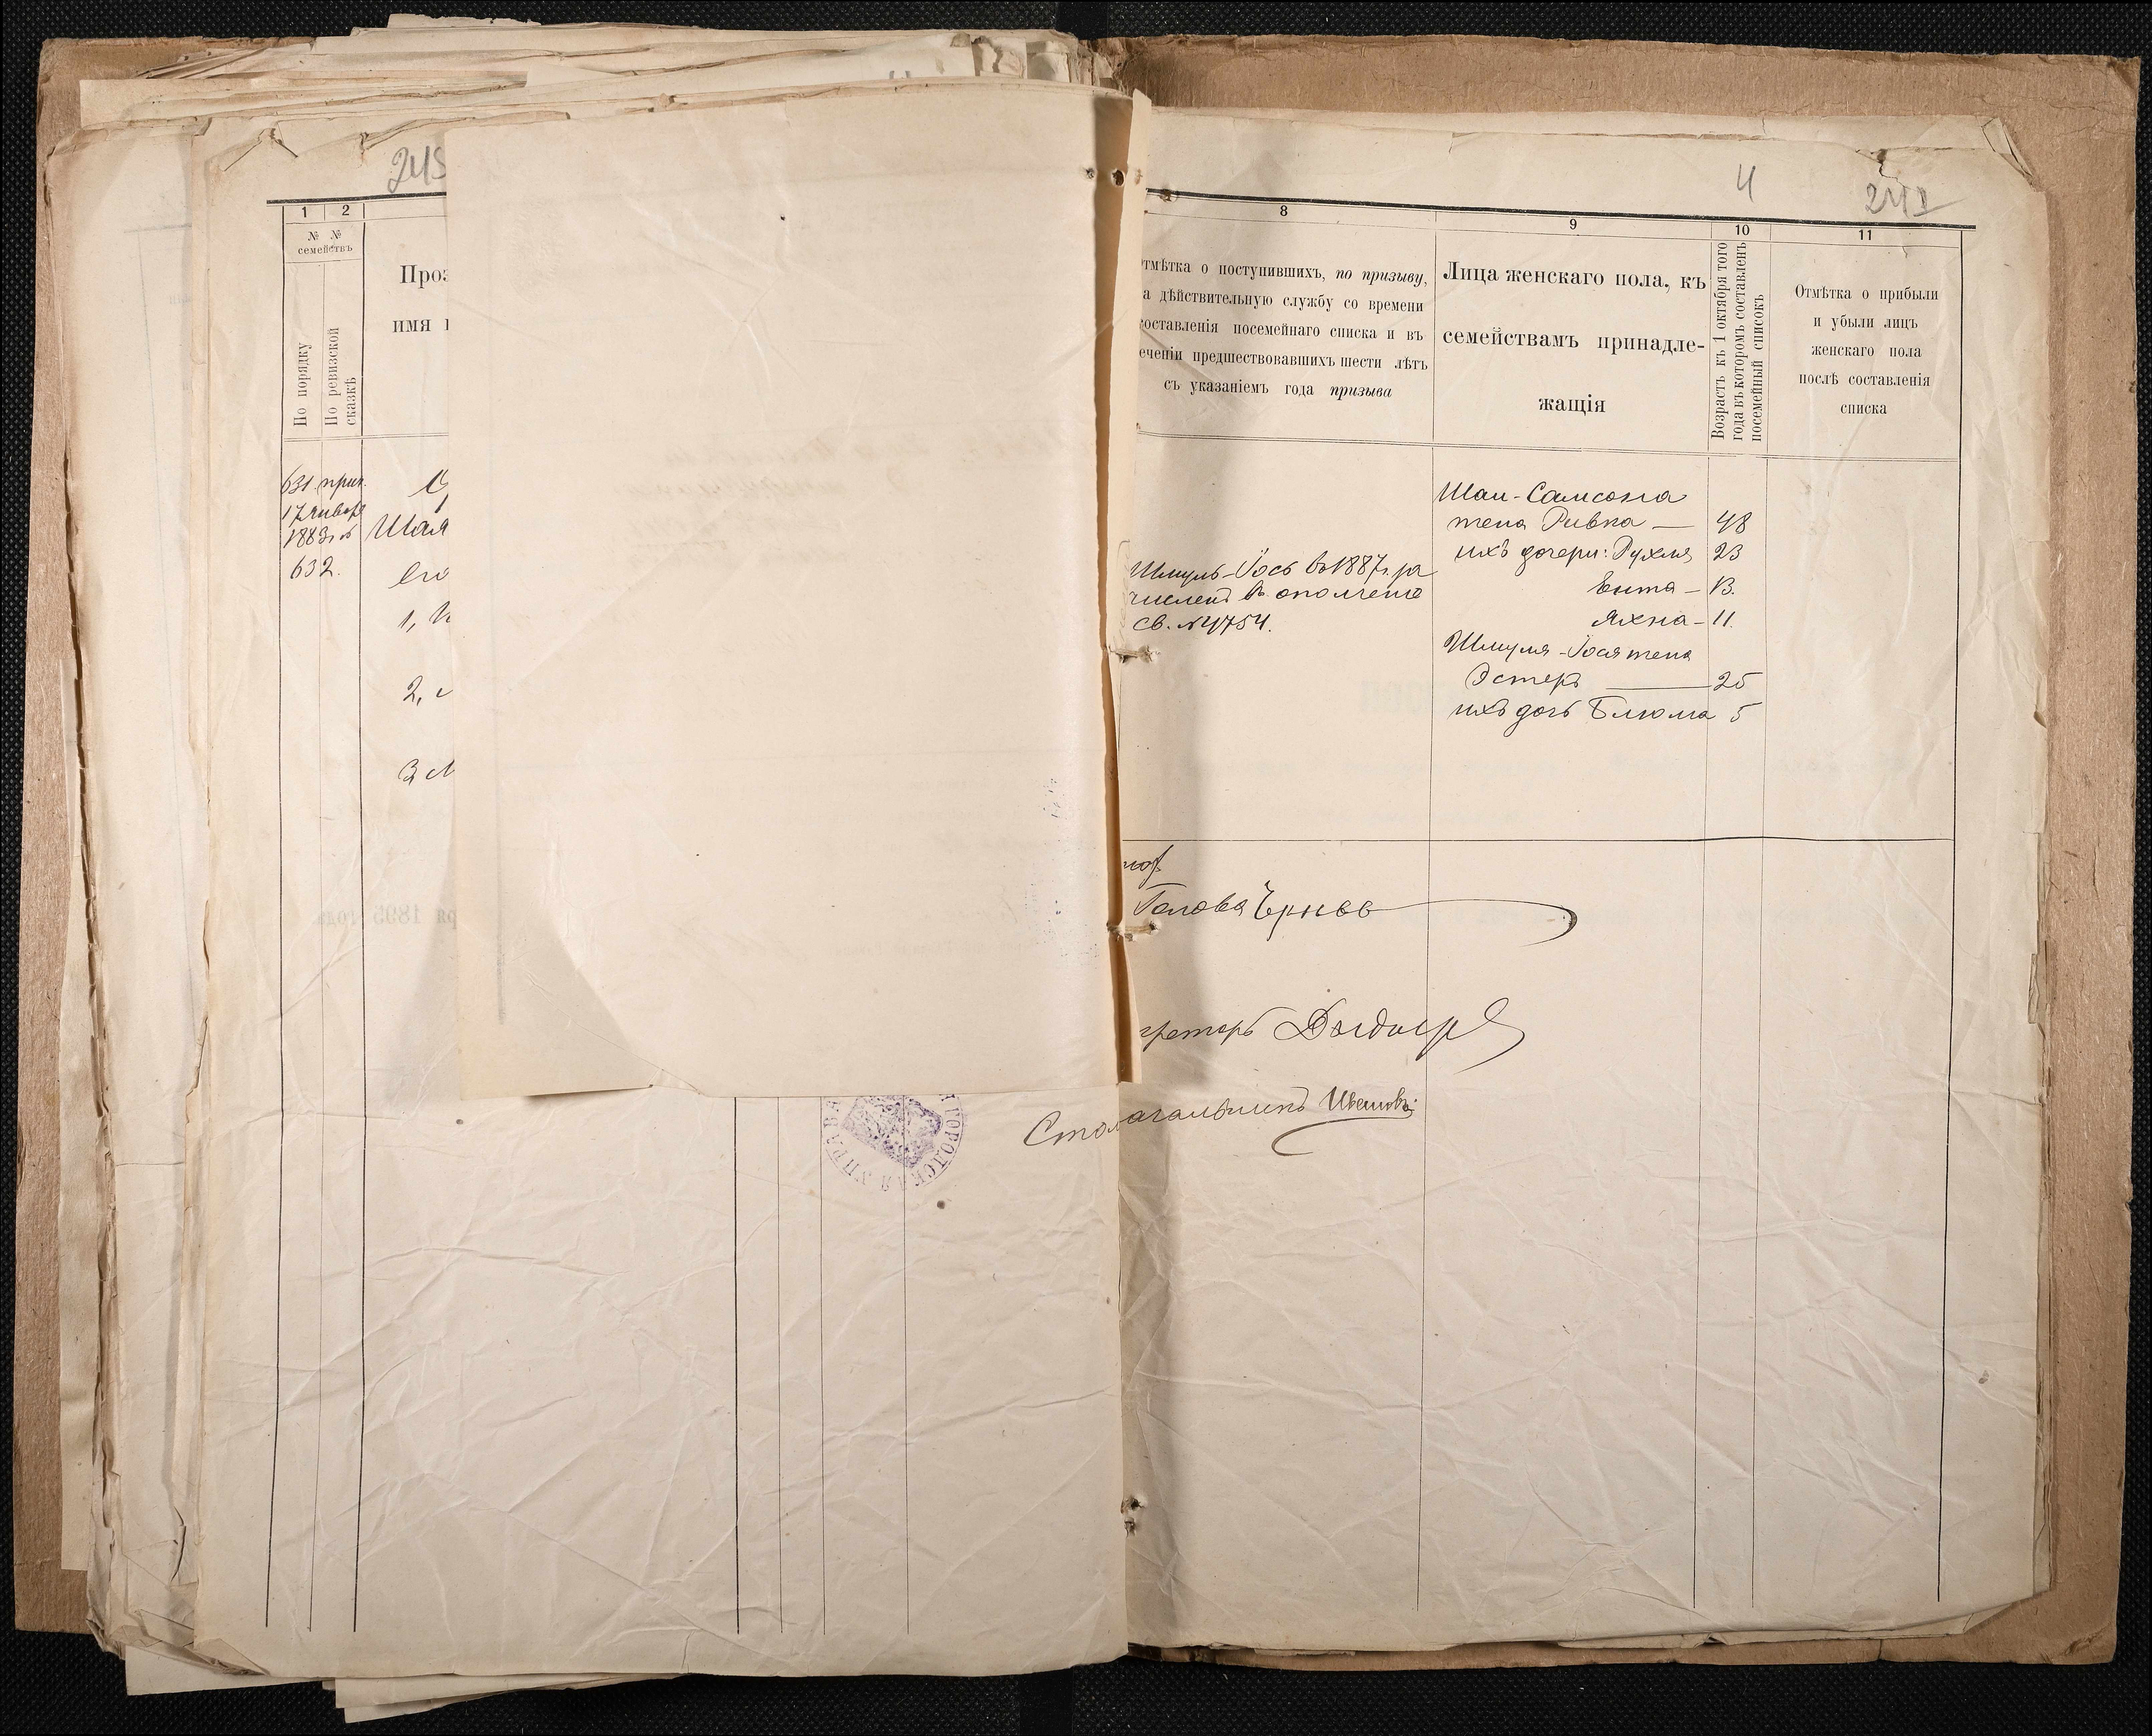 245
1 2
№ № семействъ
По порядку
По ревизской сказкѣ
Проз
имя
631 прип.
17 января
1883 г. №
632.
Шая
его
1,
2,
3,
4
241
8
9
10
11
тмѣтка о поступившихъ, по призыву,
а дѣйствительную службу со времени
оставленія посемейнаго списка и въ
еченіи предшествовавшихъ шести лѣтъ
съ указаніемъ года призыва
Лица женскаго пола, къ
семействамъ принадле-
жащія
Возрастъ къ 1 октября того
года къ которомъ составленъ
посемейный списокъ
Отмѣтка о прибыли
и убыли лицъ
женскаго пола
послѣ составленія
списка
Шмуль-Іось въ 1887 г. за
численъ въ ополченіе
св. № 4754.
Шаи-Самсона
жена Ривка — 48
ихъ дочери: Рухля 23
Ента — 13.
Яхна — 11.
Шмуля-Іося жена
Эстеръ — 25
ихъ дочь Блюма 5
Голова
кретарь
Столоначальникъ
ГОРОДСКАЯ УПРАВА